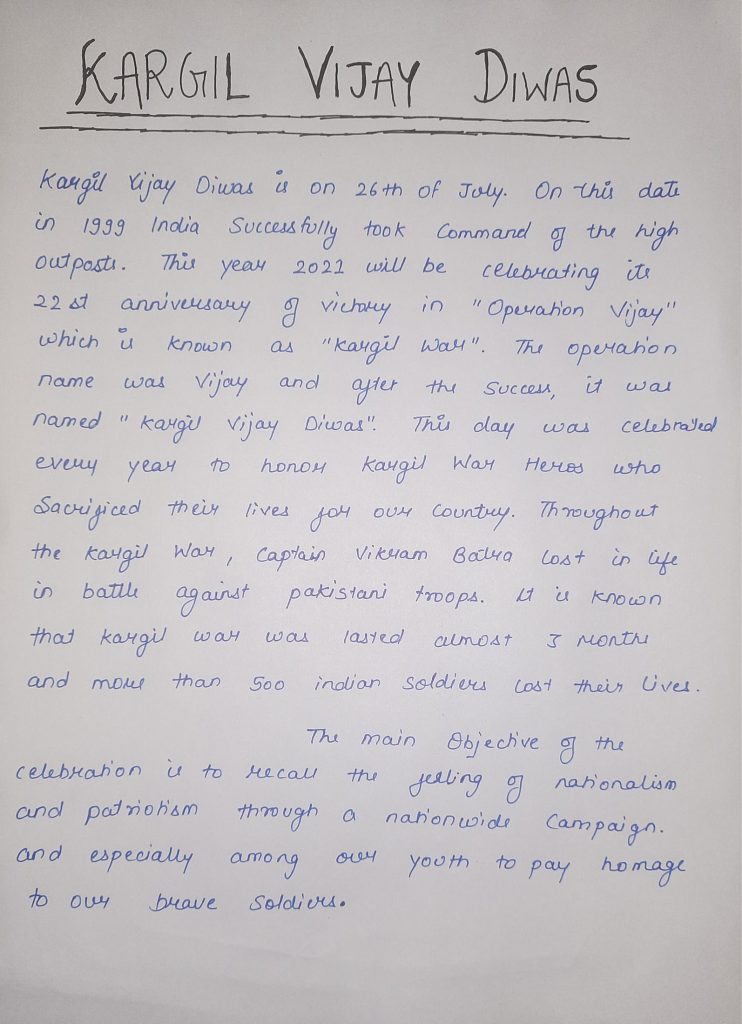 KARGIL VIJAY DIWAS
Kargil Vijay Diwas is on 26th of July. On this date
in 1999 India Successfully took Command of the high
outposts. This year 2021 will be celebrating its
22st anniversary of victory in "Operation Vijay"
which is known as "Kargil War". The operation
name was Vijay and after the Success, it was
named "Kargil Vijay Diwas". This day was celebrated
every year to honor Kargil War Heros who
Sacrificed their lives for our Country. Throughout
the Kargil War, Captain Vikram Batra Lost in life
in battle against pakistani troops. It is known
that Kargil war was lasted almost 3 Months
and more than 500 indian Soldiers Lost their Lives.
The main Objective of the
celebration is to recall the feeling of nationalism
and patriotism through a nationwide Campaign.
and especially among our youth to pay homage
to our brave Soldiers.